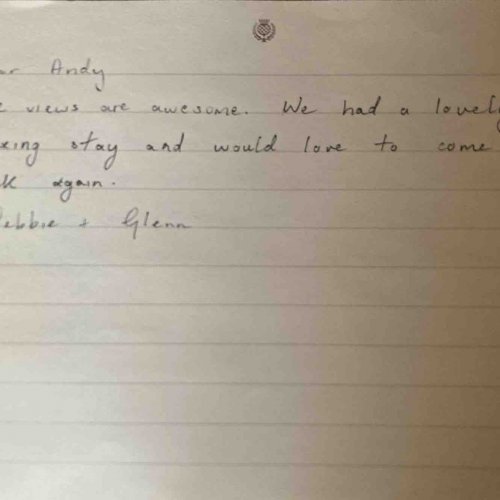 ar Andy
e views are awesome. We had a lovely
xing stay and would love to come
k again.
Debbie + Glenn